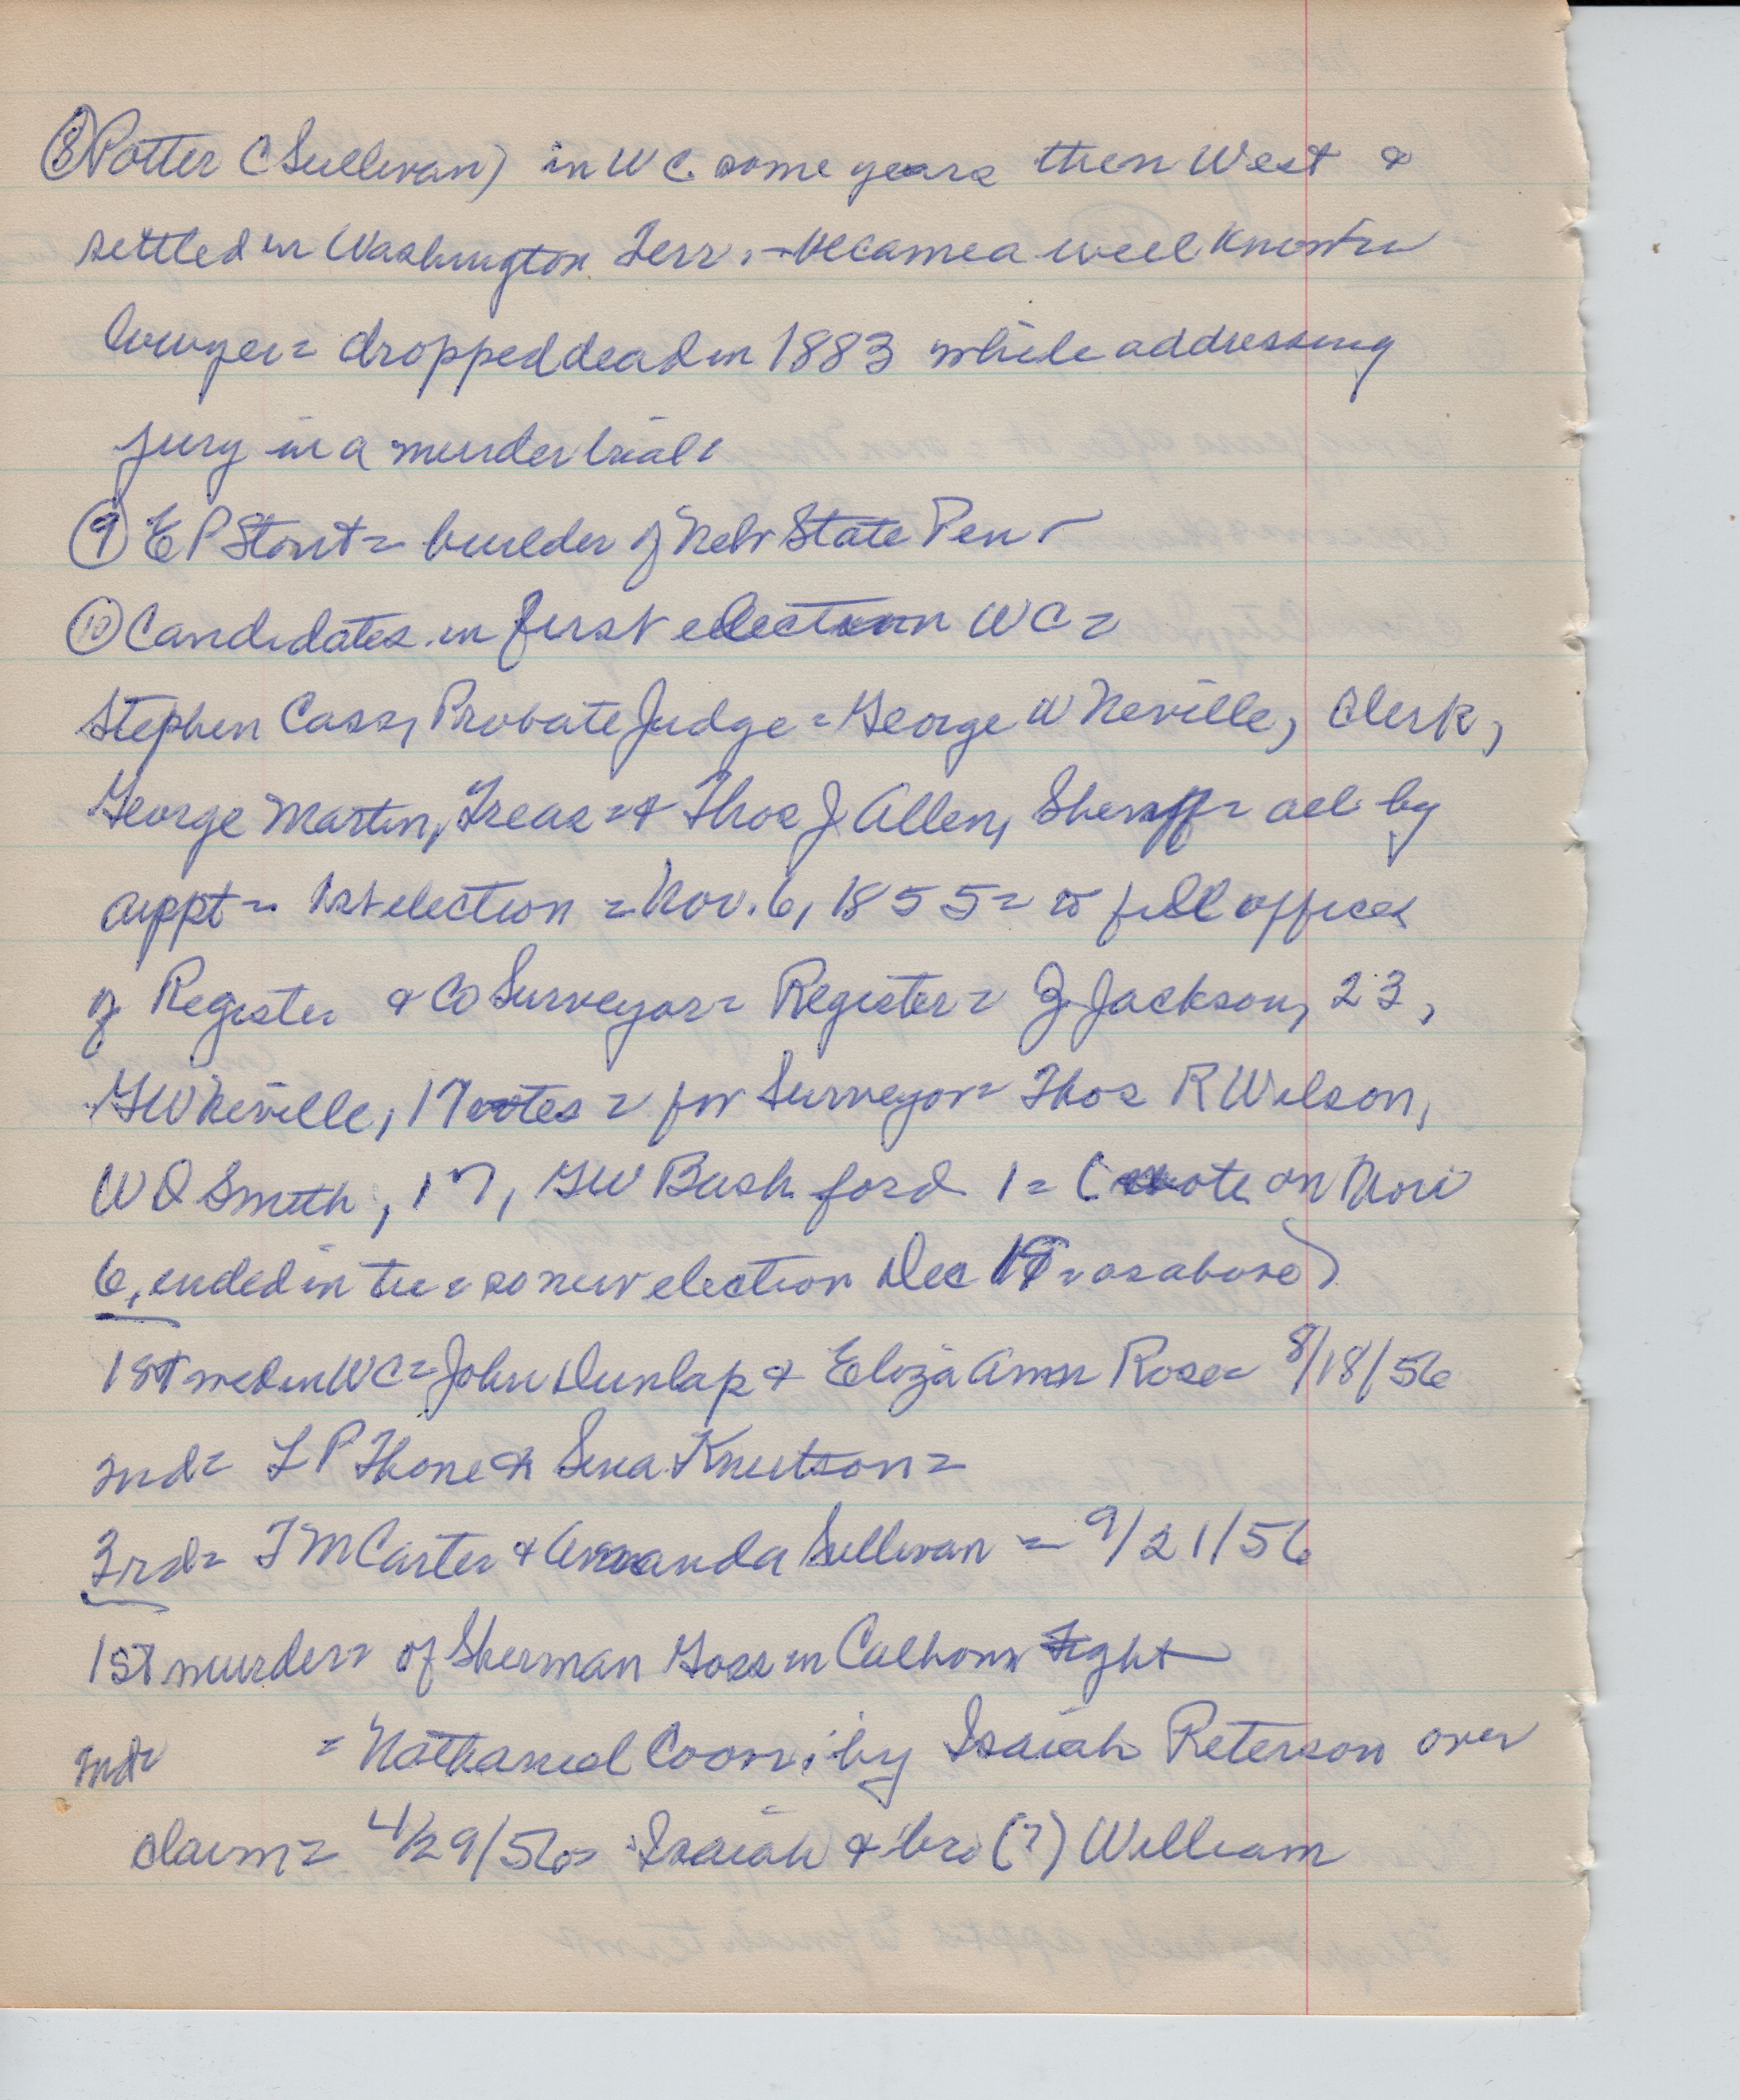 ⑧ Potter C Sullivan) in WC some years then West &
settled in Washington Terr. - became a well known
lawyer = dropped dead in 1883 while addressing
jury in a murder trial.
⑨ E P Stout = builder of Nebr State Pen -
⑩ Candidates in first election WC =
Stephen Cass, Probate Judge = George W Neville, Clerk,
George Martin, Treas = & Thos J Allen, Sheriff = all by
appt = 1st election = Nov. 6, 1855 = to fill offices
of Register & Co Surveyor = Register = Z Jackson, 23,
GW Neville, 17 votes = for Surveyor = Thos R Wilson,
W D Smith, 17, GW Bashford 1 = ( vote on Nov
6, ended in tie = so new election Dec = as above)
1st wed in WC = John Dunlap & Eliza Ann Rose = 8/18/56
2nd = L P Thone & Sena Knutson =
3rd = T M Carter & Amanda Sullivan = 9/21/56
1st murder = of Sherman Goss in Calhoun Fight
2nd = = Nathaniel Coon by Isaiah Peterson over
claim = 4/29/56 = Isaiah & bro (?) William